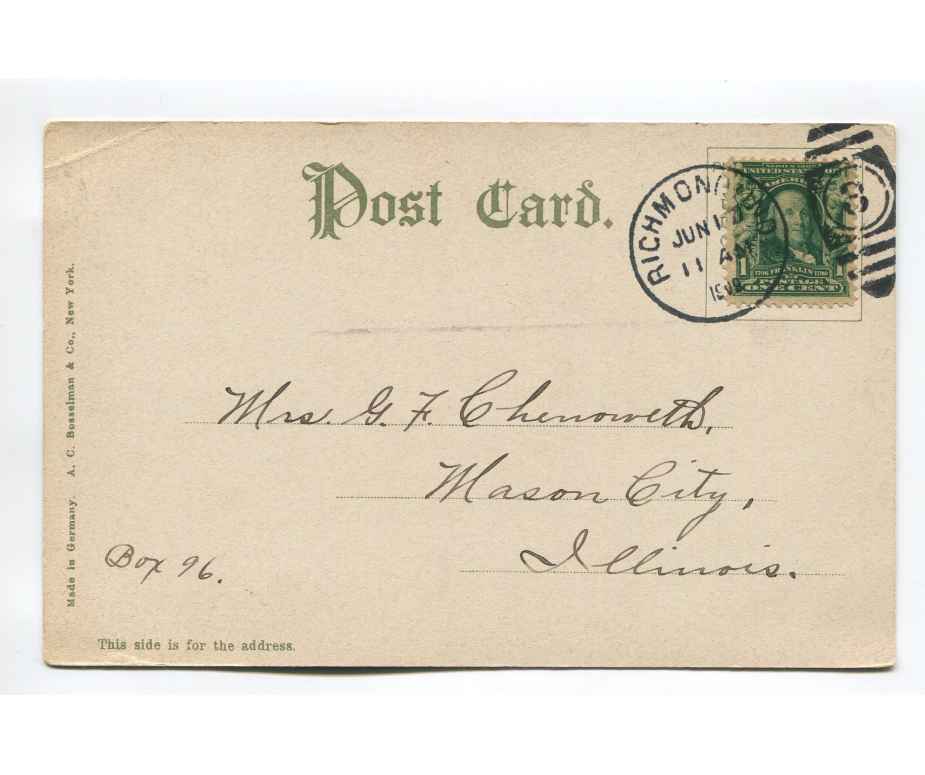 Post Card.
RICHMOND
JUN 1
11 AM
UNITED STATES OF
AMERICA
1706 FRANKLIN 1790
POSTAGE
1 ONE CENT 1
Mrs. G. F. Chenoweth,
Mason City,
Illinois.
Box 96.
This side is for the address.
Made in Germany. A. C. Bosselman & Co., New York.